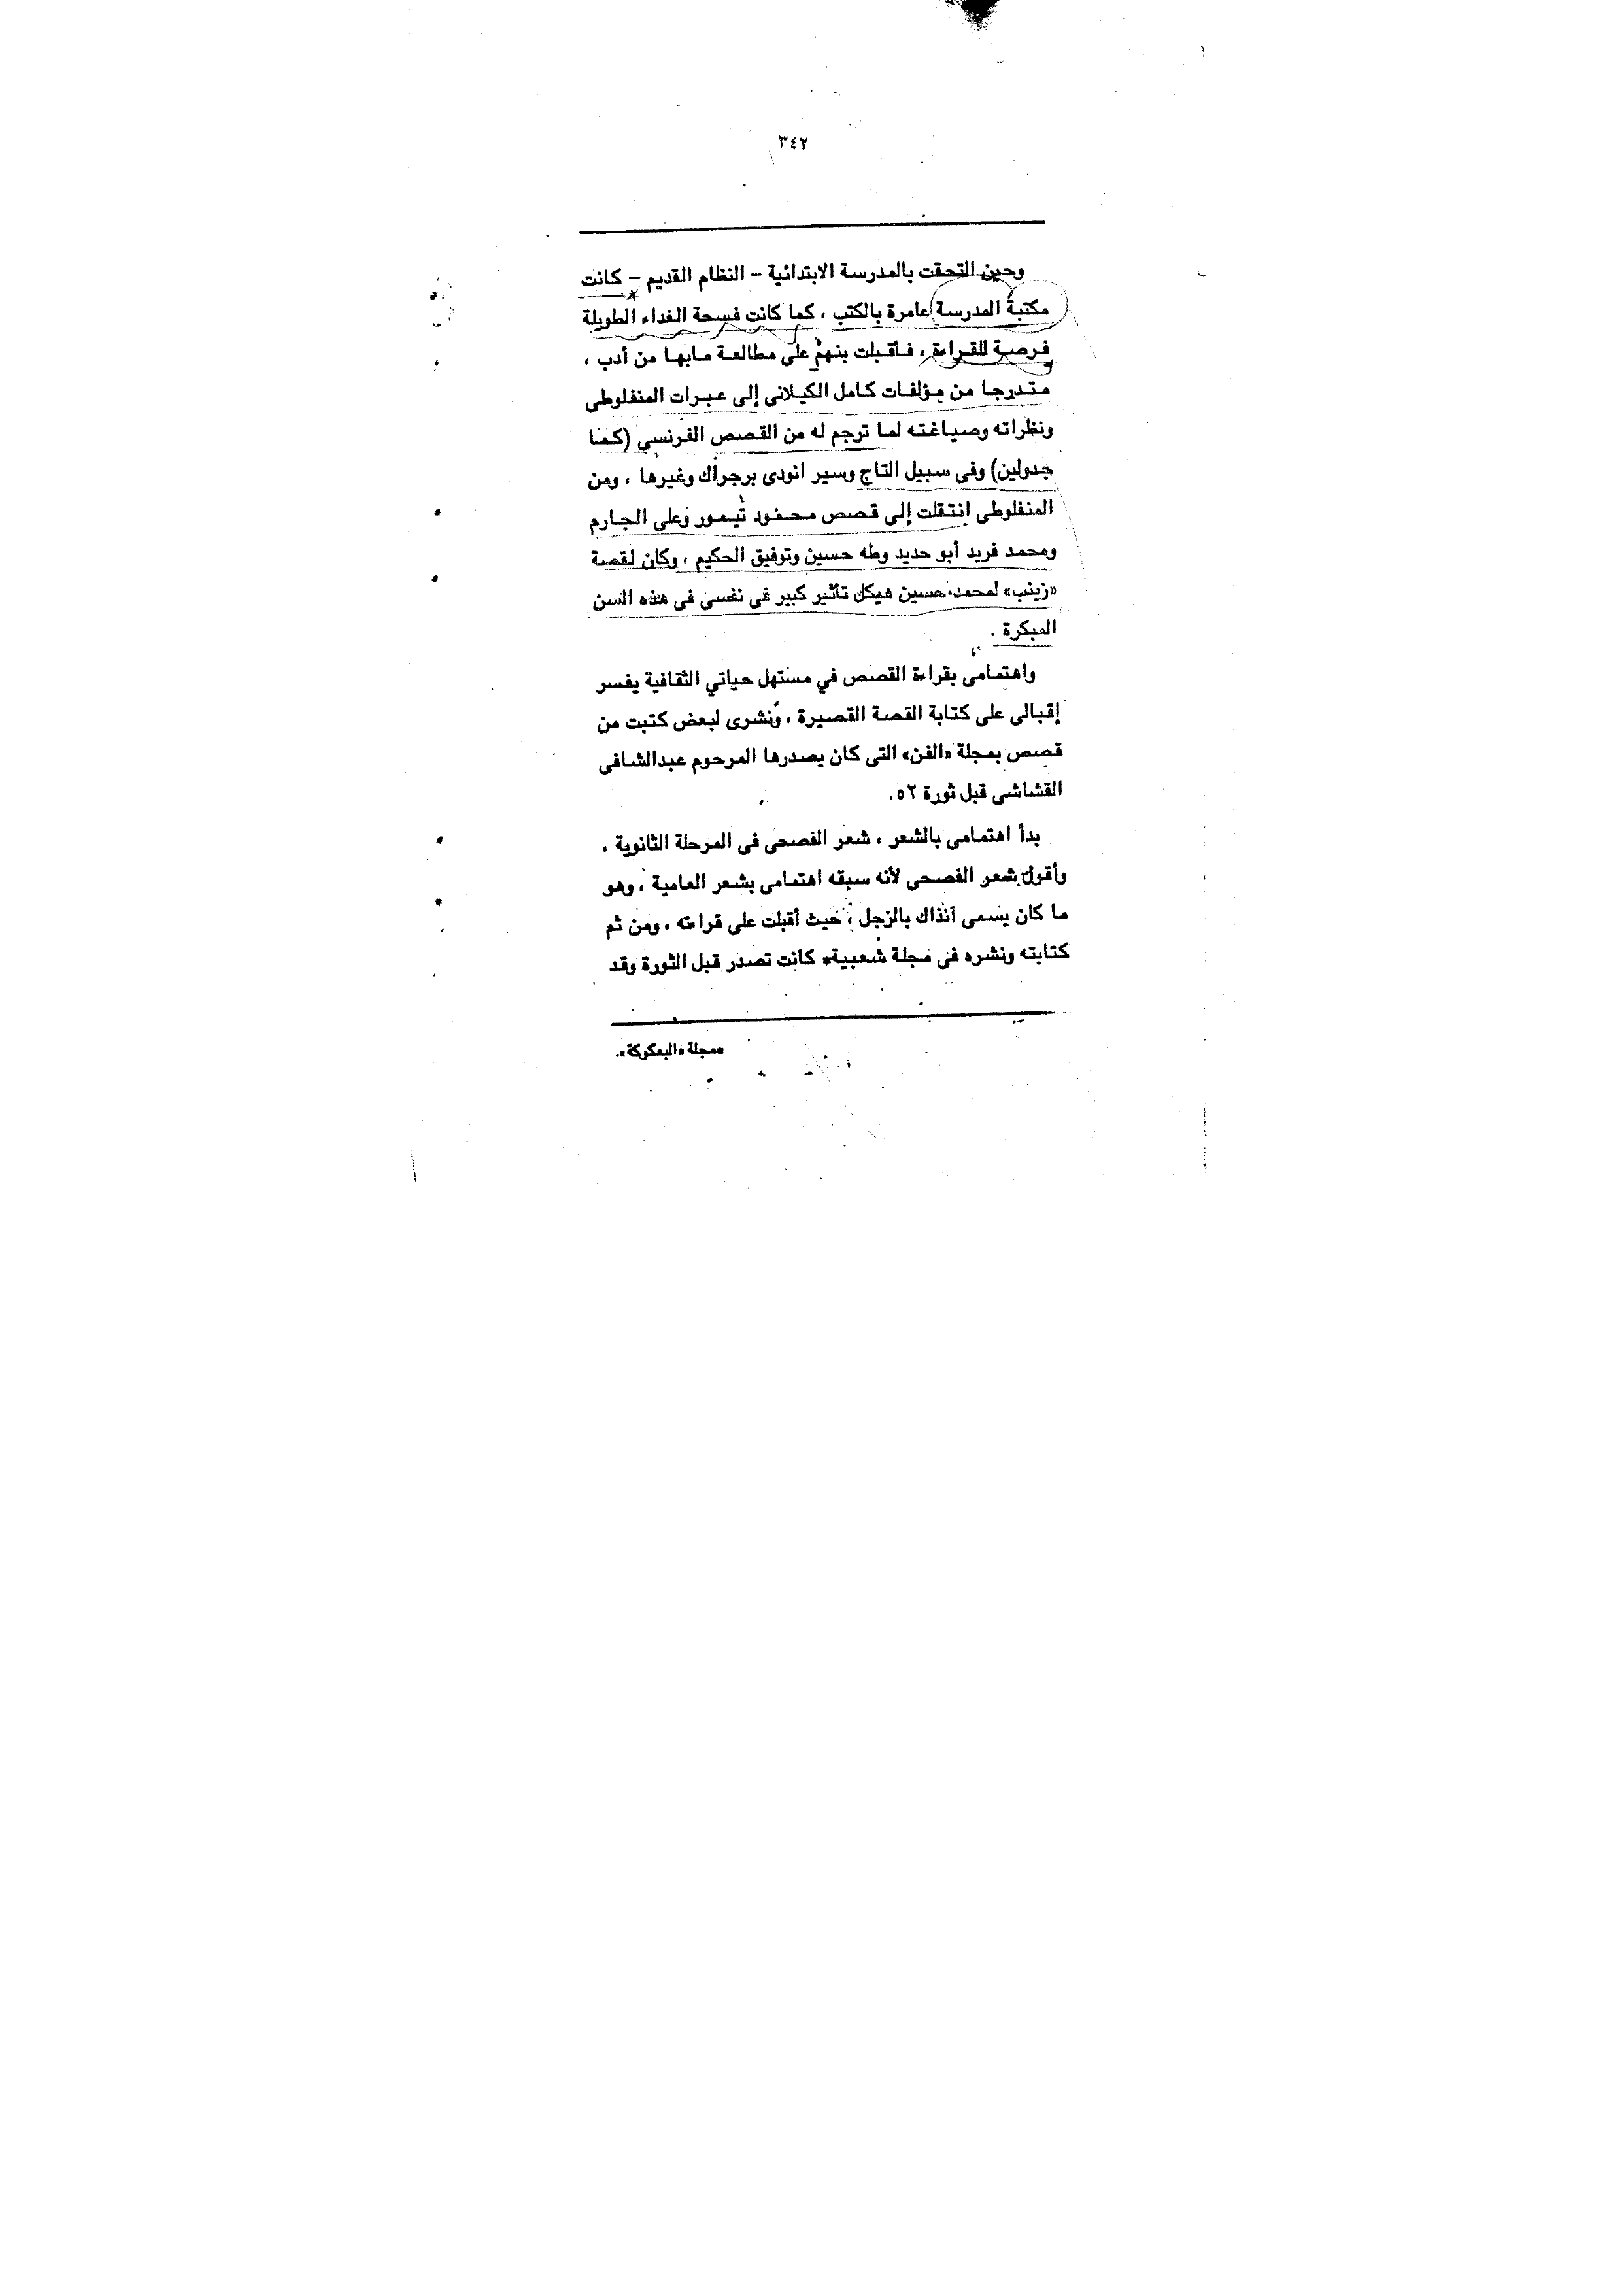 ٣٤٢
وحين التحقت بالمدرسة الابتدائية – النظام القديم – كانت
مكتبة المدرسة عامرة بالكتب ، كما كانت فسحة الغداء الطويلة
فرصة للقراءة ، فأقبلت بنهم على مطالعة مابها من أدب ،
متدرجا من مؤلفات كامل الكيلانى إلى عبرات المنفلوطى
ونظراته وصياغته لما ترجم له من القصص الفرنسي (كما
جدولين) وفى سبيل التاج وسير انودى برجراك وغيرها ، ومن
المنفلوطى انتقلت إلى قصص محمود تيمور وعلى الجارم
ومحمد فريد أبو حديد وطه حسين وتوفيق الحكيم ، وكان لقصة
«زينب» لمحمد حسين هيكل تأثير كبير فى نفسى فى هذه السن
المبكرة .
واهتمامى بقراءة القصص في مستهل حياتي الثقافية يفسر
إقبالى على كتابة القصة القصيرة ، ونشرى لبعض كتبت من
قصص بمجلة «الفن» التى كان يصدرها المرحوم عبدالشافى
القشاشى قبل ثورة ٥٢.
بدأ اهتمامى بالشعر ، شعر الفصحى فى المرحلة الثانوية ،
وأقول بشعر الفصحى لأنه سبقه اهتمامى بشعر العامية ، وهو
ما كان يسمى آنذاك بالزجل ، حيث أقبلت على قراءته ، ومن ثم
كتابته ونشره فى مجلة شعبية* كانت تصدر قبل الثورة وقد
*مجلة «البعكوكة».